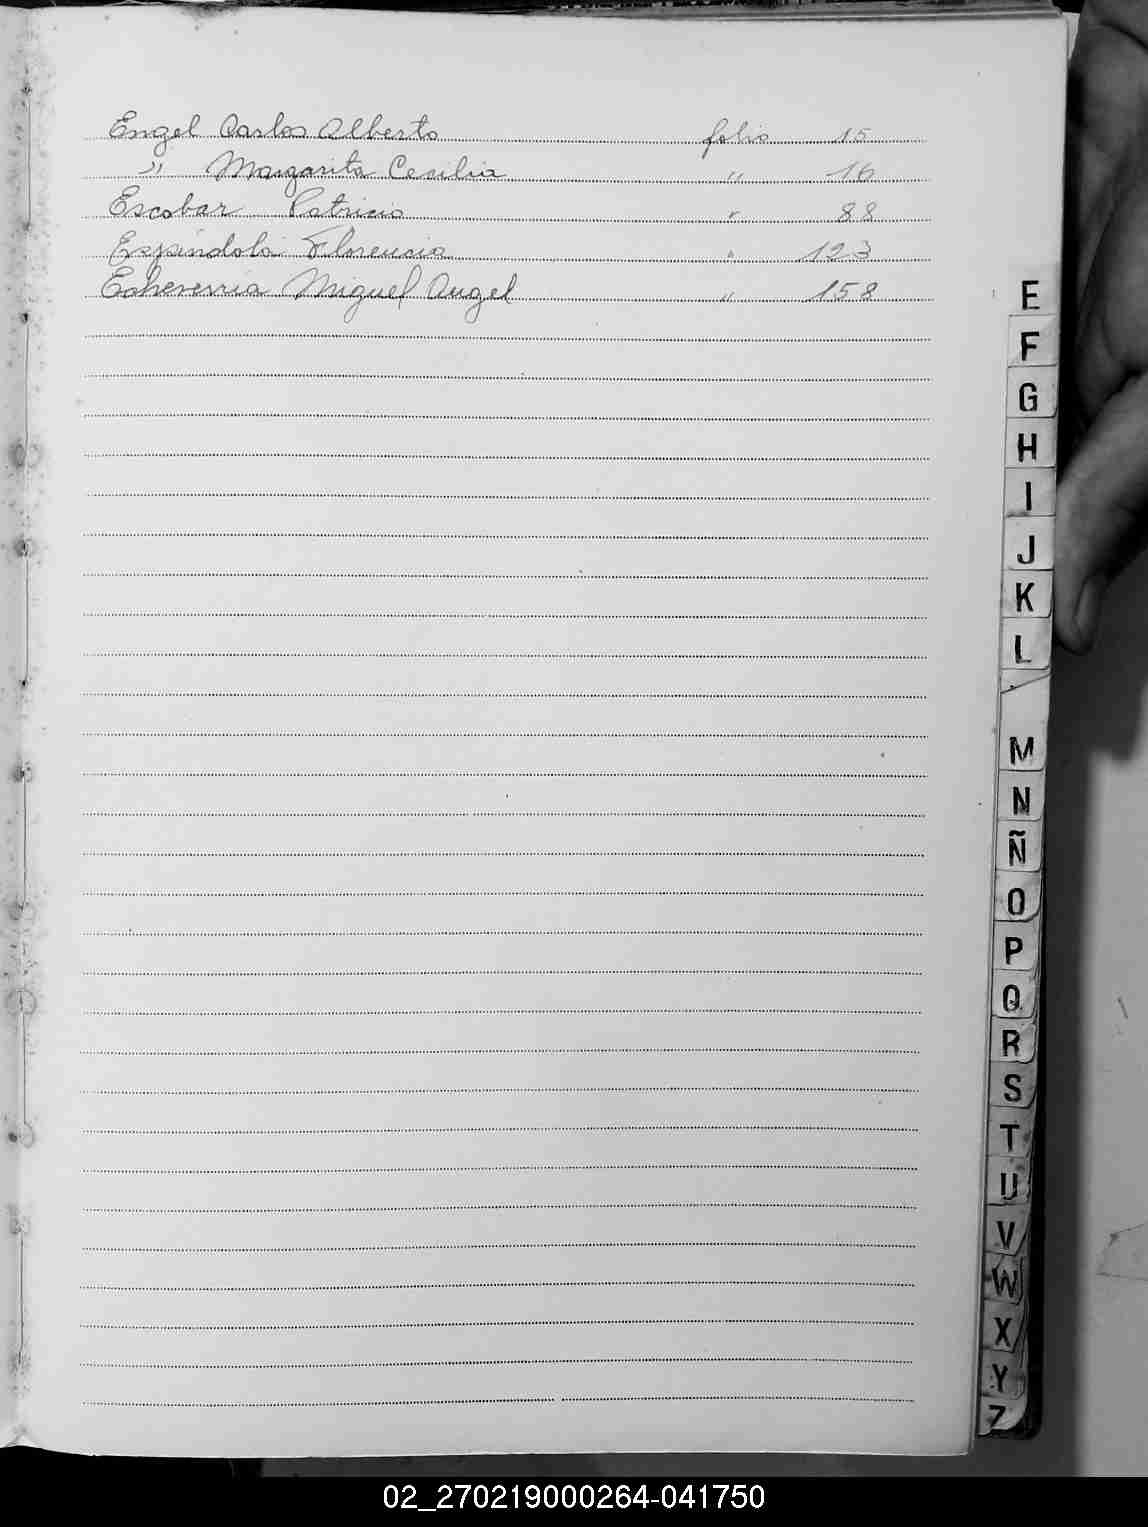 Engel Carlos Alberto folio 15
" Margarita Cecilia " 16
Escobar Patricio " 88
Espíndola Florencia " 123
Echeverria Miguel Angel " 158
E
F
G
H
I
J
K
L
M
N
Ñ
O
P
Q
R
S
T
U
V
W
X
Y
Z
02_270219000264-041750